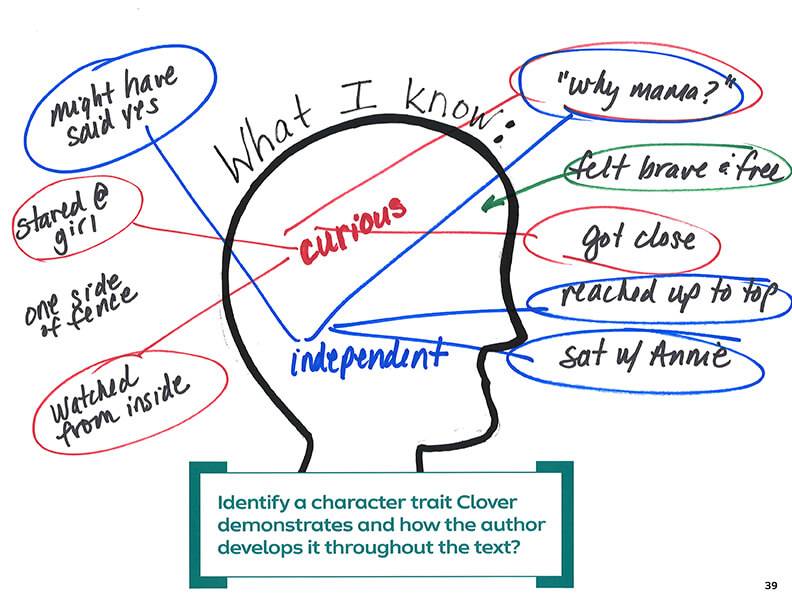 What I know:
might have
said yes
stared @
girl
one side
of fence
Watched
from inside
curious
independent
"why mama?"
felt brave & free
got close
reached up to top
sat w/ Annie
Identify a character trait Clover
demonstrates and how the author
develops it throughout the text?
39